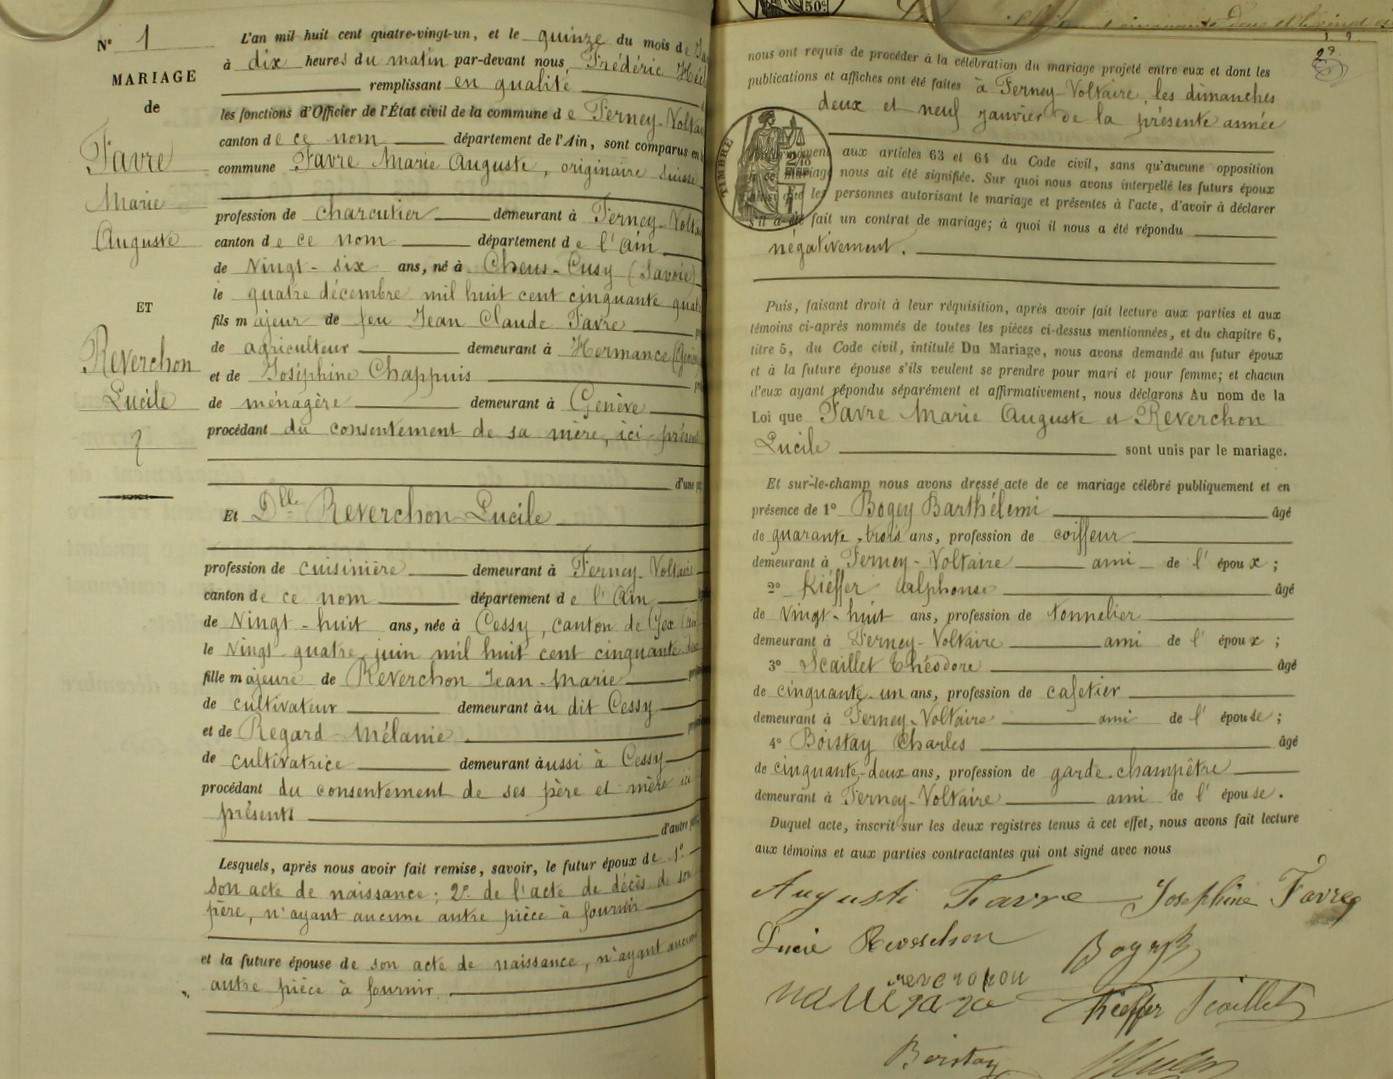 N° 1
MARIAGE
de
Favre
Marie
Auguste
ET
Reverchon
Lucile
L'an mil huit cent quatre-vingt-un, et le quinze du mois de
à dix heures du matin par-devant nous, Frédéric
remplissant en qualité
les fonctions d'Officier de l'État civil de la commune de Ferney-Voltai
canton de ce nom département de l'Ain, sont comparus en
commune Favre Marie Auguste, originaire Suisse
profession de charcutier demeurant à Ferney-Voltai
canton de ce nom département de l'Ain
de Vingt-six ans, né à Chens-Cusy (Savoie)
le quatre décembre mil huit cent cinquante quatr
fils majeur de feu Jean Claude Favre
de agriculteur demeurant à Hermance (Genève
et de Joséphine Chappuis
de ménagère demeurant à Genève
procédant du consentement de sa mère, ici présent
d'une pa
Et Dlle Reverchon Lucile
profession de cuisinière demeurant à Ferney-Voltaire
canton de ce nom département de l'Ain
de Vingt-huit ans, née à Cessy, canton de Gex (Ain
le Vingt quatre juin mil huit cent cinquante
fille majeure de Reverchon Jean-Marie
de cultivateur demeurant au dit Cessy
et de Regard Mélanie
de cultivatrice demeurant aussi à Cessy
procédant du consentement de ses père et mère ici
présents
d'autre part
Lesquels, après nous avoir fait remise, savoir, le futur époux de 1°
son acte de naissance; 2° de l'acte de décès de son
père, n'ayant aucune autre pièce à fournir
et la future épouse de son acte de naissance, n'ayant aucune
autre pièce à fournir.
nous ont requis de procéder à la célébration du mariage projeté entre eux et dont les
publications et affiches ont été faites à Ferney-Voltaire, les dimanches
deux et neuf janvier de la présente année
TIMBRE
aux articles 63 et 64 du Code civil, sans qu'aucune opposition
mariage nous ait été signifiée. Sur quoi nous avons interpellé les futurs époux
que les personnes autorisant le mariage et présentes à l'acte, d'avoir à déclarer
s'il a été fait un contrat de mariage; à quoi il nous a été répondu
négativement.
Puis, faisant droit à leur réquisition, après avoir fait lecture aux parties et aux
témoins ci-après nommés de toutes les pièces ci-dessus mentionnées, et du chapitre 6,
titre 5, du Code civil, intitulé Du Mariage, nous avons demandé au futur époux
et à la future épouse s'ils veulent se prendre pour mari et pour femme; et chacun
d'eux ayant répondu séparément et affirmativement, nous déclarons Au nom de la
Loi que Favre Marie Auguste et Reverchon
Lucile sont unis par le mariage.
Et sur-le-champ nous avons dressé acte de ce mariage célébré publiquement et en
présence de 1° Bogey Barthélemi âgé
de quarante-trois ans, profession de coiffeur
demeurant à Ferney-Voltaire ami de l'époux;
2° Kieffer Alphonse âgé
de Vingt-huit ans, profession de tonnelier
demeurant à Ferney-Voltaire ami de l'époux;
3° Scaillet Théodore âgé
de cinquante-un ans, profession de cafetier
demeurant à Ferney-Voltaire ami de l'épouse;
4° Boistay Charles âgé
de cinquante-deux ans, profession de garde-champêtre
demeurant à Ferney-Voltaire ami de l'épouse.
Duquel acte, inscrit sur les deux registres tenus à cet effet, nous avons fait lecture
aux témoins et aux parties contractantes qui ont signé avec nous
Auguste Favre Joséphine Favre
Lucie Reverchon
reverchon
Kieffer Scaillet
Boistay